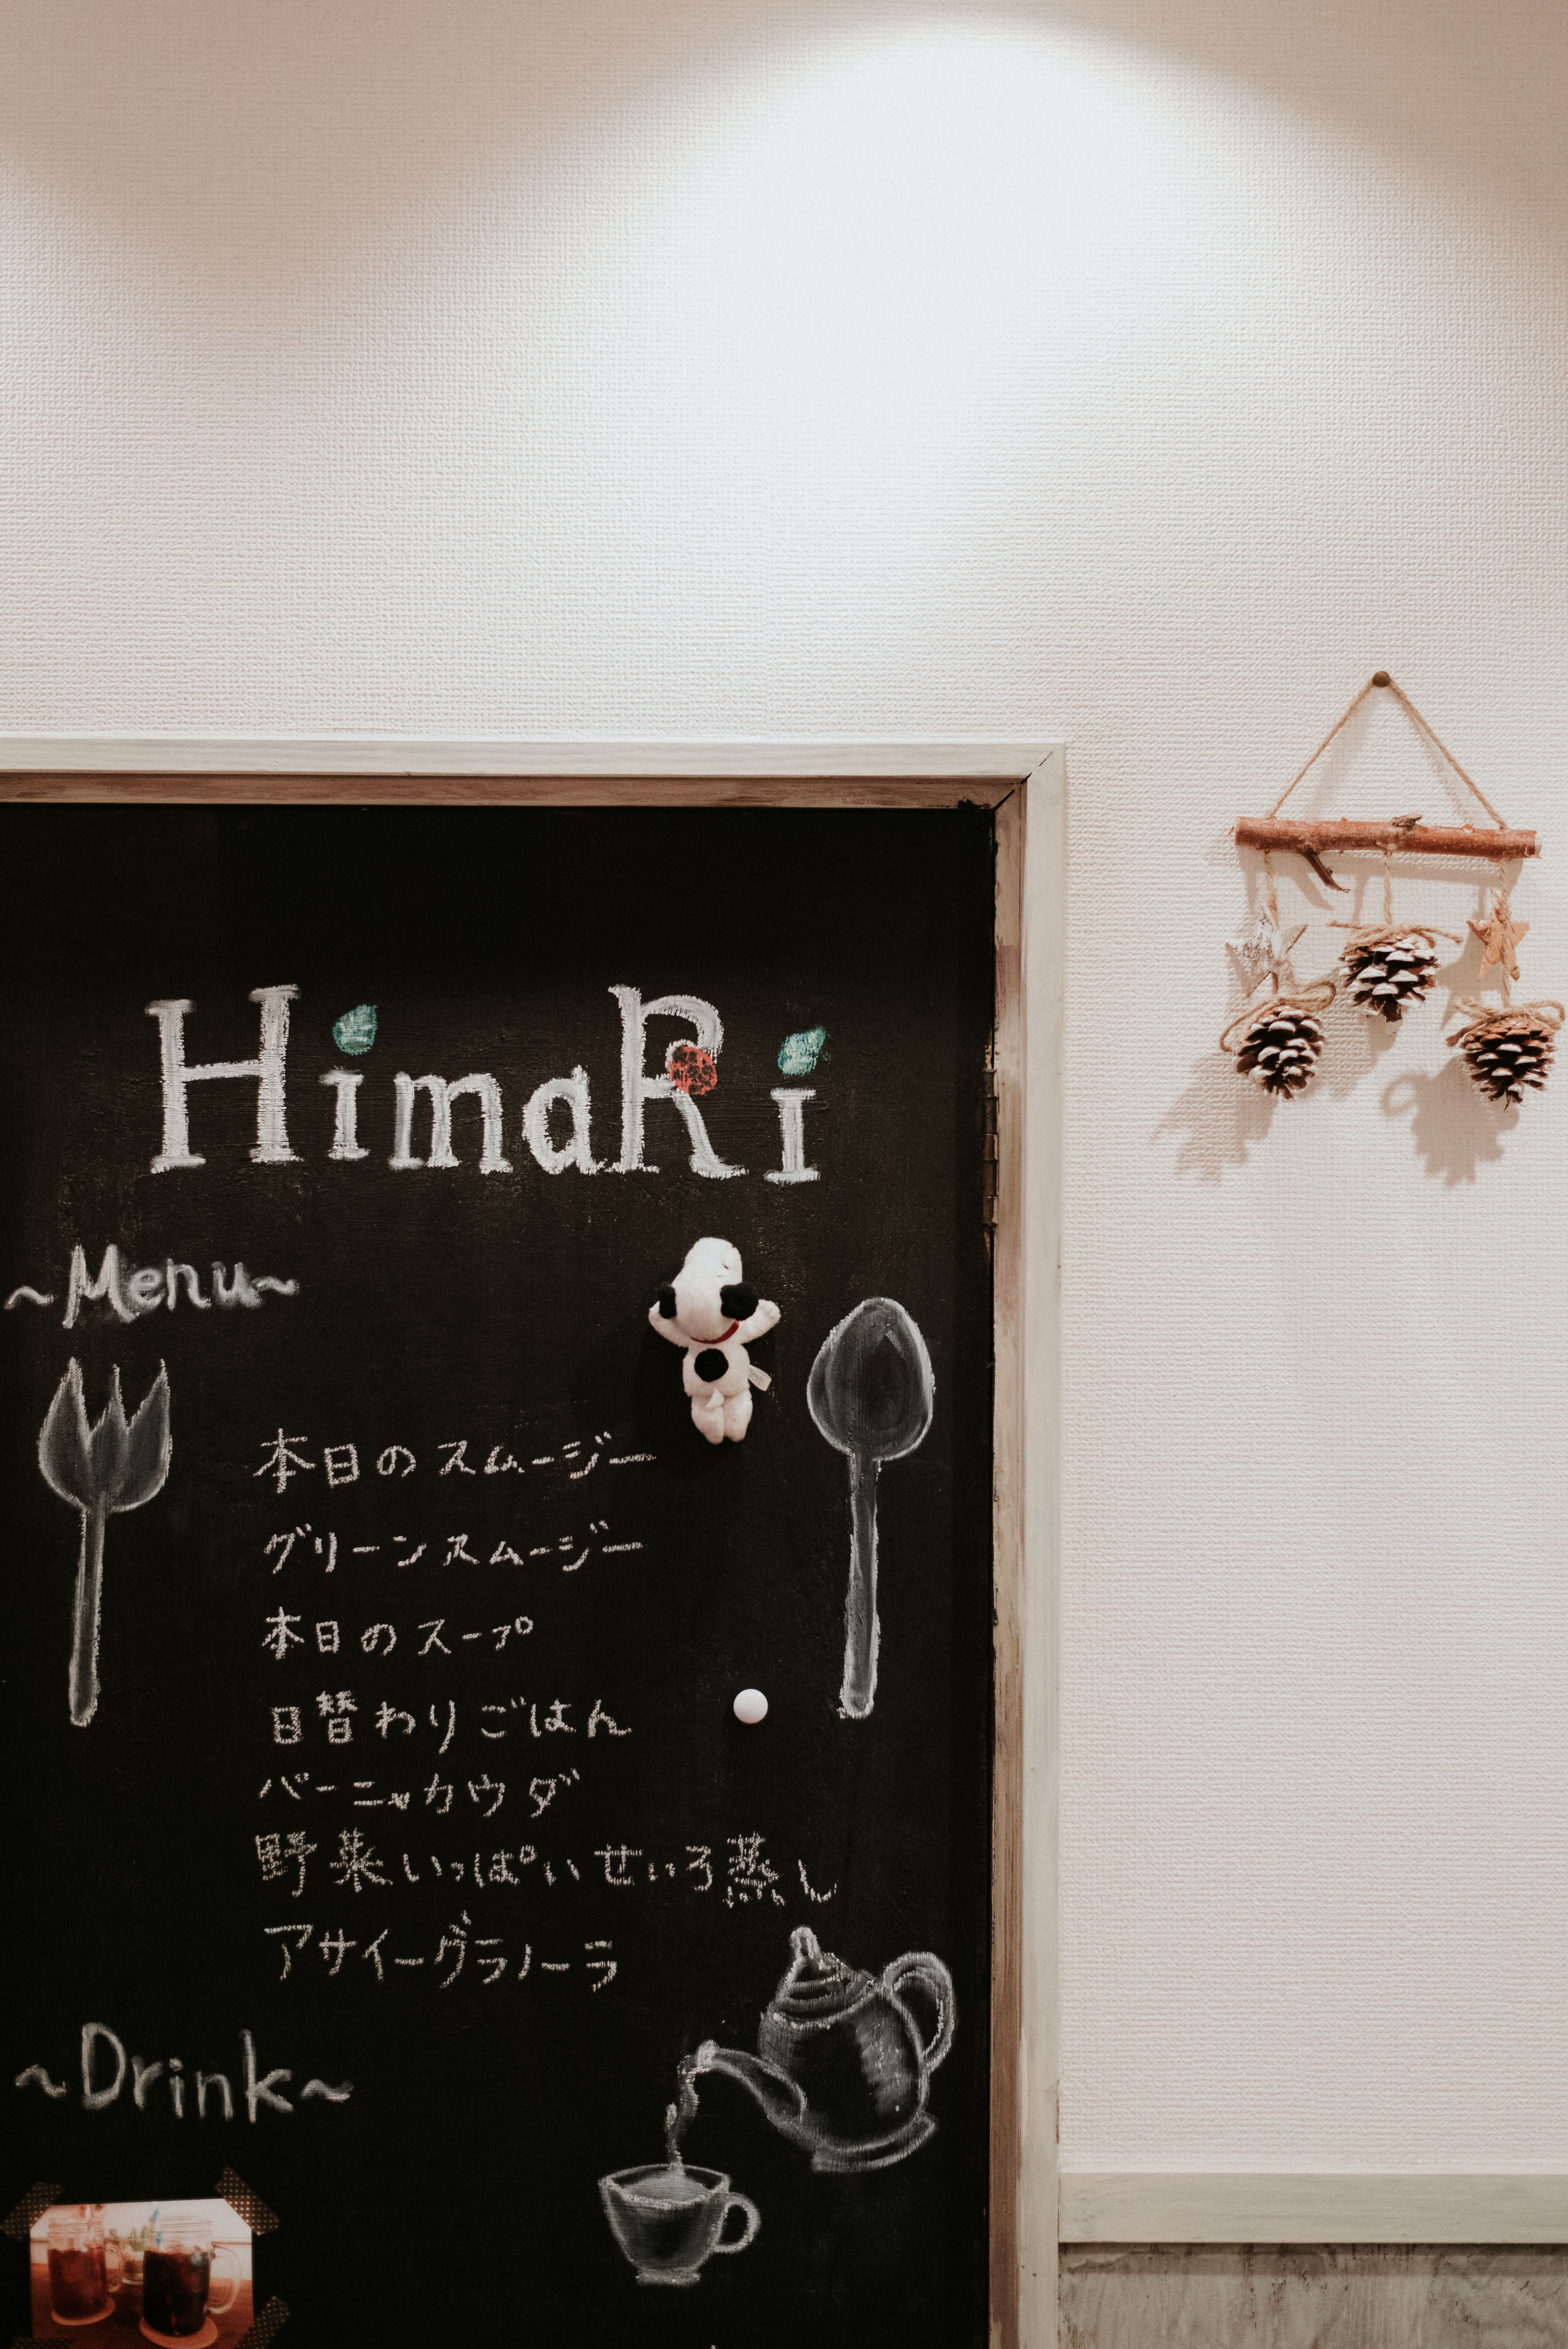 HimaRi
~Menu~
本日のスムージー
グリーンスムージー
本日のスープ
日替わりごはん
バーニャカウダ
野菜いっぱいせいろ蒸し
アサイーグラノーラ
~Drink~